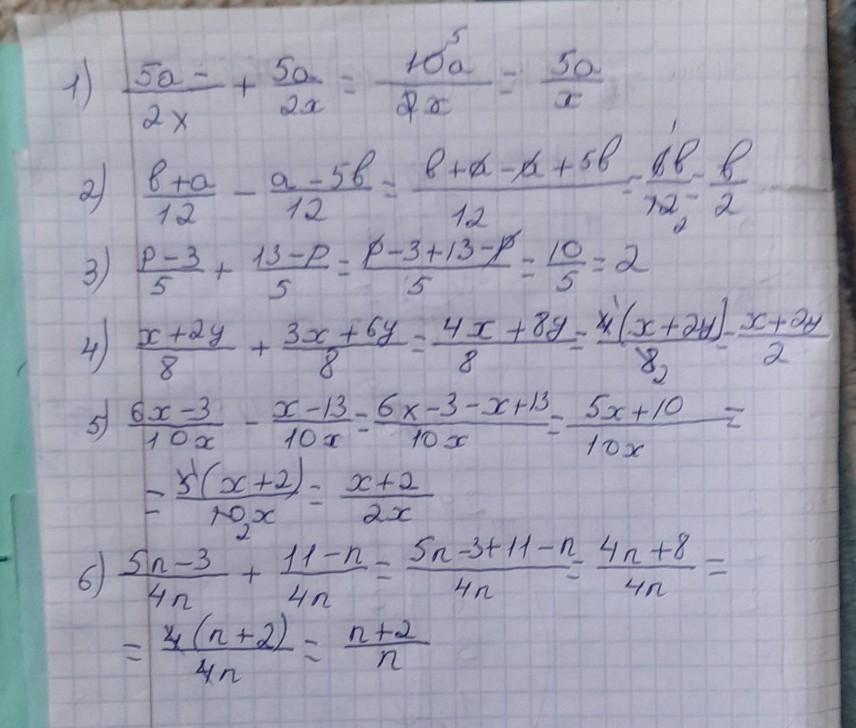 1) 5a/2x + 5a/2x = 10a/2x = 5a/x
2) (в+a)/12 - (a-5в)/12 = (в+a-a+5в)/12 = 6в/12 = в/2
3) (p-3)/5 + (13-p)/5 = (p-3+13-p)/5 = 10/5 = 2
4) (x+2y)/8 + (3x+6y)/8 = (4x+8y)/8 = 4(x+2y)/8 = (x+2y)/2
5) (6x-3)/10x - (x-13)/10x = (6x-3-x+13)/10x = (5x+10)/10x =
= 5(x+2)/10x = (x+2)/2x
6) (5n-3)/4n + (11-n)/4n = (5n-3+11-n)/4n = (4n+8)/4n =
= 4(n+2)/4n = (n+2)/n